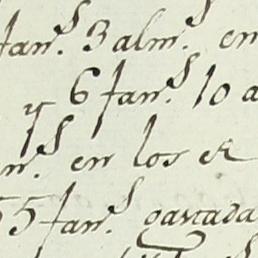 fan.s 3 alm.s en
y 6 fan.s 10 a
n.s en los er
55 fan.s gastada